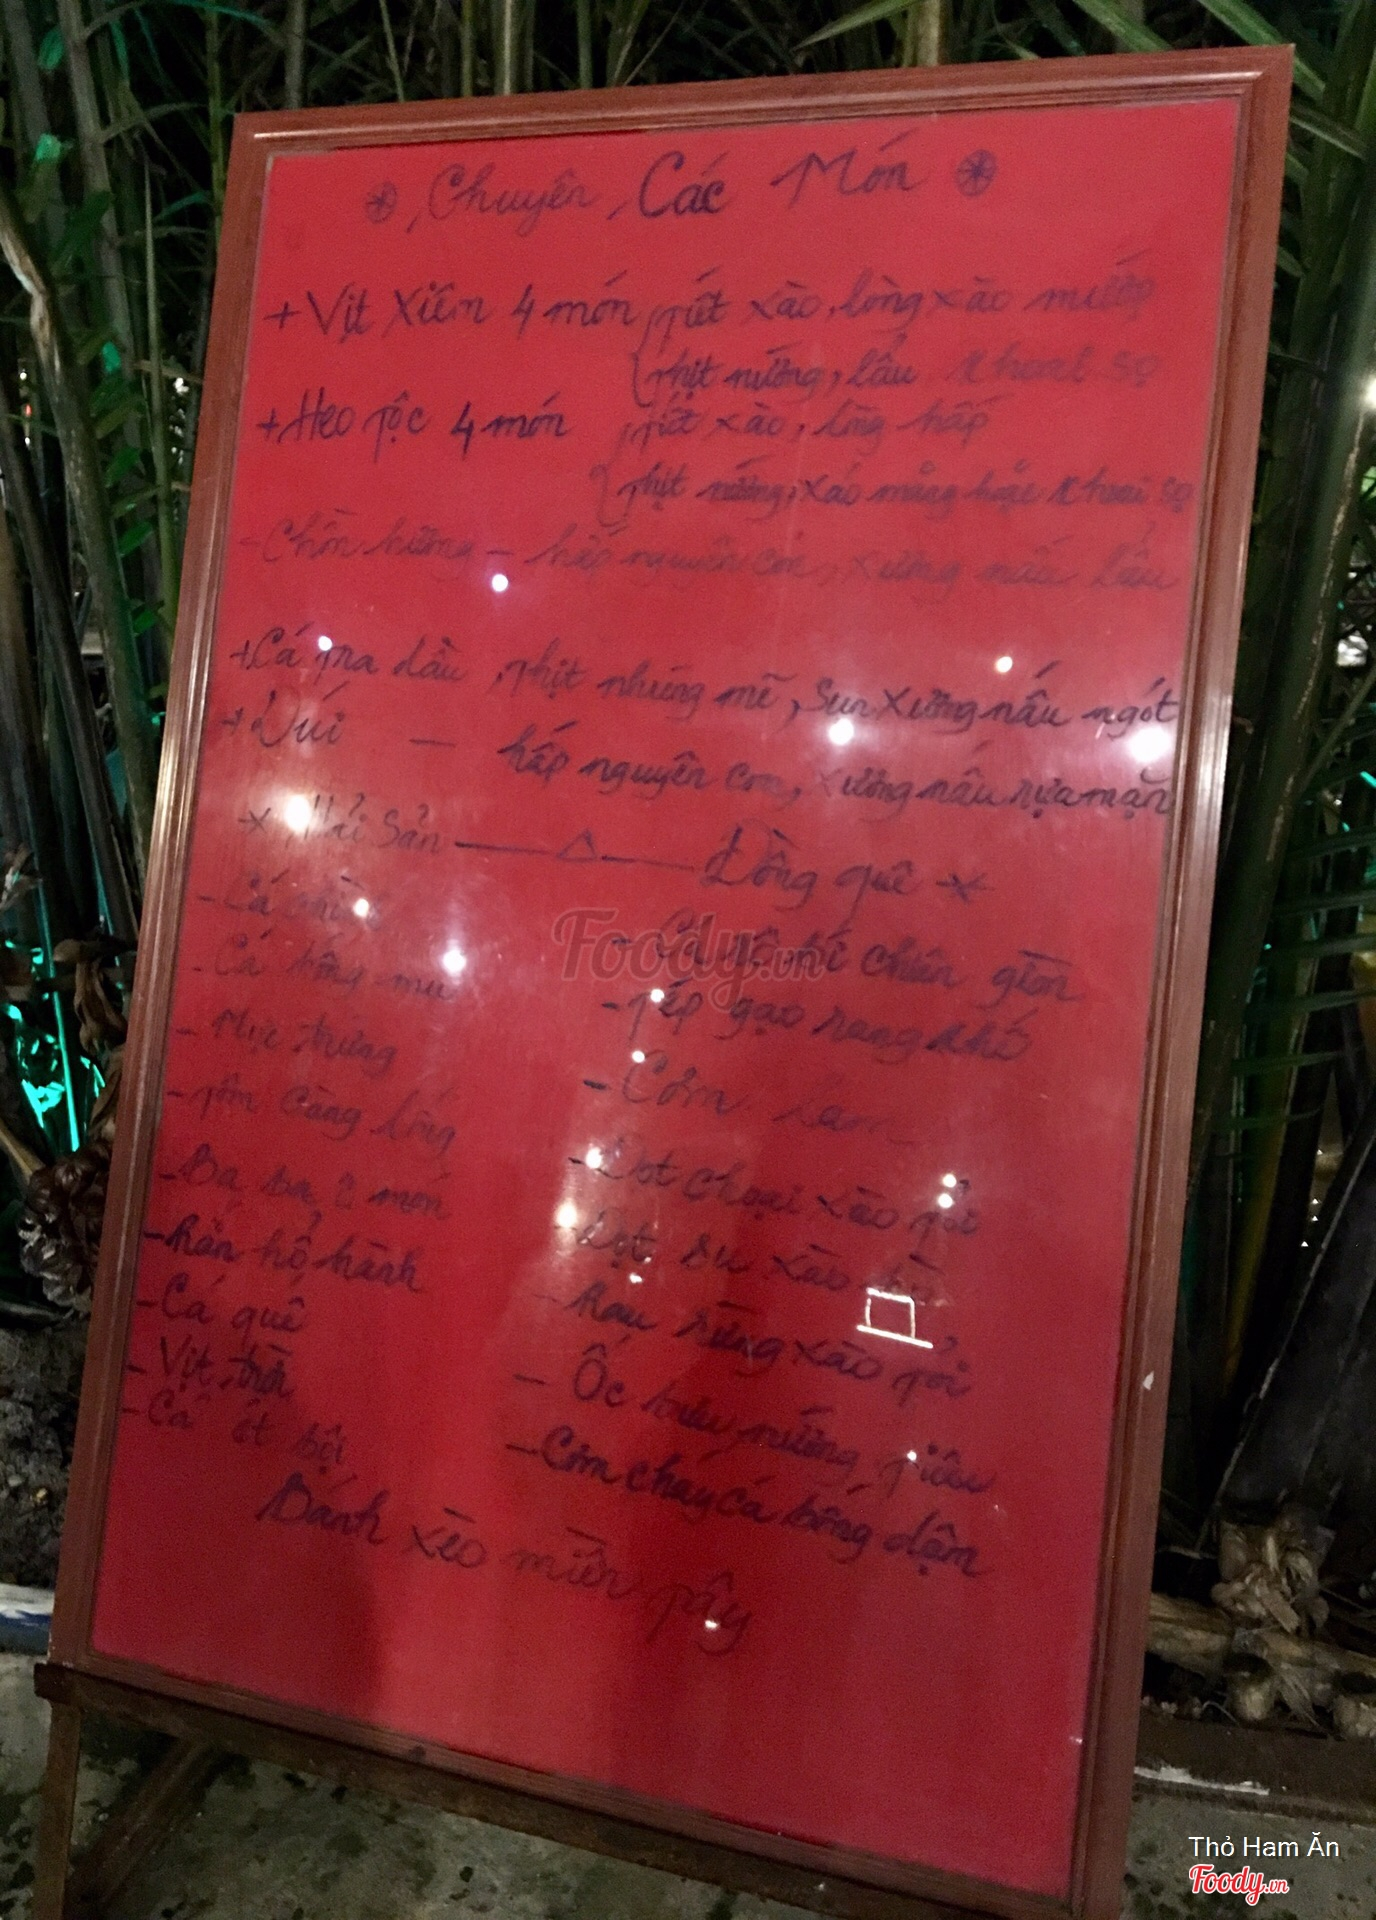 Chuyên Các Món
+ Vịt Xiêm 4 món tiết xào, lòng xào mướp
thịt nướng, lẩu khoai sọ
+ Heo tộc 4 món tiết xào, lòng hấp
thịt nướng, xáo măng hoặc khoai sọ
- Chồn hương - hấp nguyên con, xương nấu lẩu
+ Cá tra dầu, thịt nhúng mẻ, Sụn xương nấu ngót
+ Dúi - hấp nguyên con, xương nấu rựa mận
* Hải Sản Đồng quê *
- Cá
- Cá bống mú
- Mực trứng
- Tôm càng
- Ba ba 2 món
- Rắn hổ hành
- Cá quê
- Vịt trời
- Cá ót bội
- Cá rô bí chiên giòn
- Tép gạo rang khô
- Cơm lam
- Đọt choại xào tỏi
- Đọt su xào tỏi
- Rau rừng xào tỏi
- Ốc bươu nướng tiêu
- Cơm cháy cá bống dậm
Bánh xèo miền tây
Foody.vn
Thỏ Ham Ăn
Foody.vn